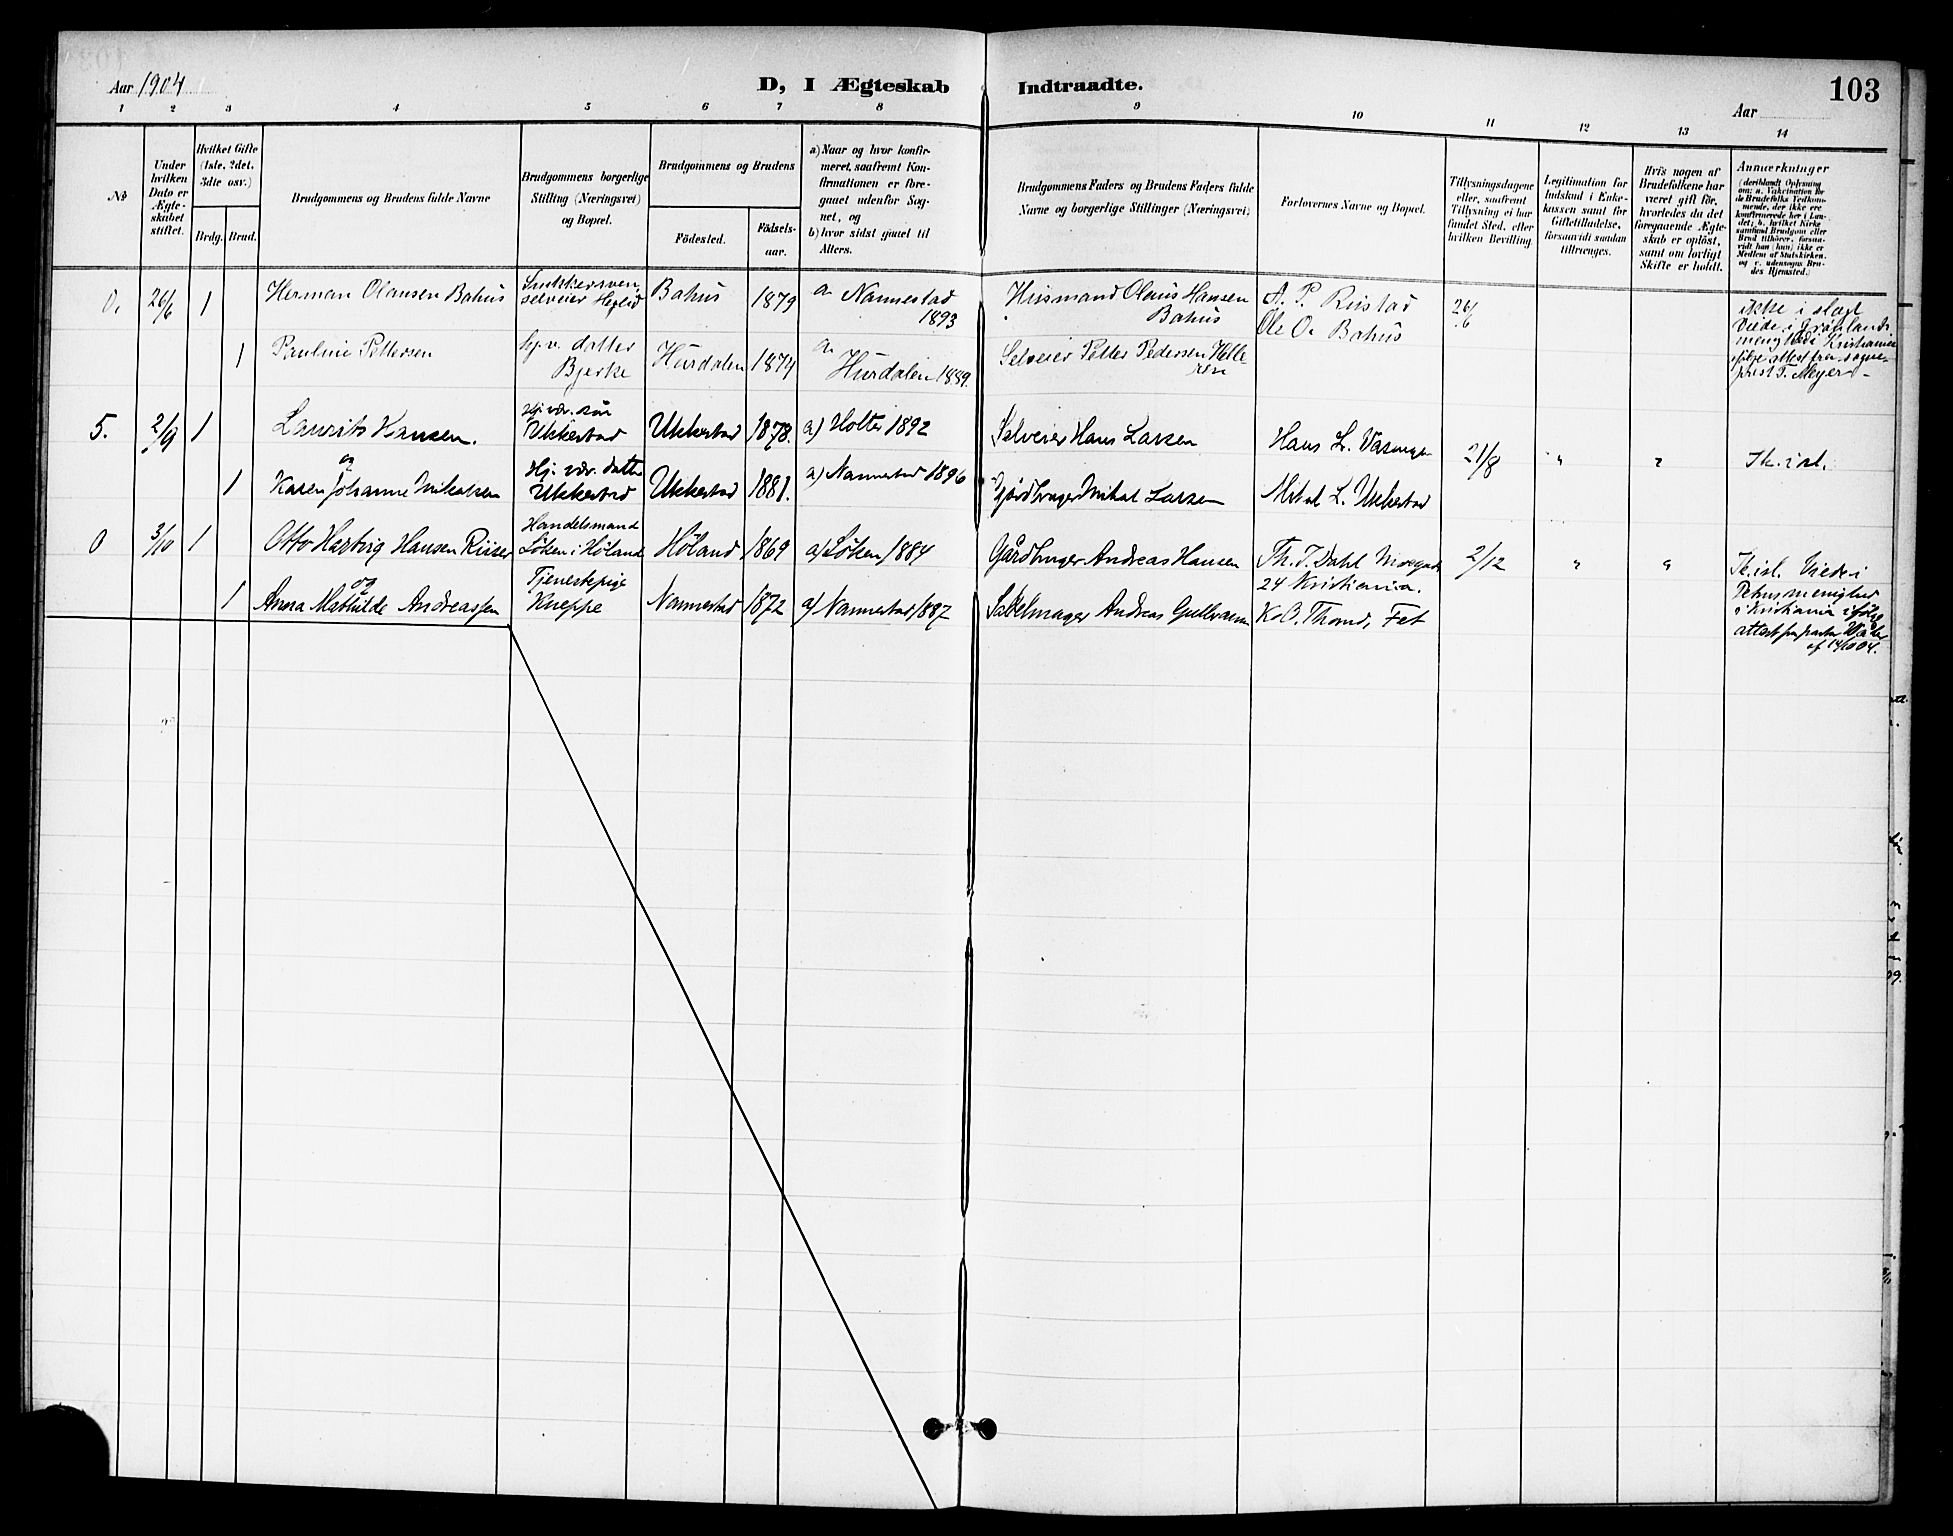 Aar 1904
D, I Ægteskab Indtraadte.
Aar
103
1 2 3 4 5 6 7 8 9 10 11 12 13 14
No
Under hvilken Dato er Ægteskabet stiftet.
Hvilket Gifte (1ste, 2det, 3die osv.)
Brdg. Brud.
Brudgommens og Brudens fulde Navne
Brudgommens borgerlige Stilling (Næringsvei) og Bopæl.
Brudgommens og Brudens
Fødested.
Fødselsaar.
a) Naar og hvor konfirmeret, saafremt Konfirmationen er foregaaet udenfor Sognet, og
b) hvor sidst gaaet til Alters.
Brudgommens Faders og Brudens Faders fulde Navne og borgerlige Stillinger (Næringsvei)
Forlovernes Navne og Bopæl.
Tillysningsdagene eller, saafremt Tillysning ei har fundet Sted, efter hvilken Bevilling
Legitimation for Indskud i Enkekassen samt for Giftetilladelse, forsaavidt saadan tiltrænges.
Hvis nogen af Brudefolkene har været gift før, hvorledes da det foregaaende Ægteskab er opløst, samt om lovligt Skifte er holdt.
Anmærkninger
(deriblandt Oplysning om: a. Vakcination for de Brudefolks Vedkommende, der ikke ere konfirmerede her i Landet; b. hvilket Kirkesamfund Brudgom eller Brud tilhører, forsaavidt han (hun) ikke er Medlem af Statskirken, og c. udensogns Brudes Hjemsted.)
0. 26/6 1 Herman Olausen Bahus selveier Bahus 1879 a Nannestad 1893 Husmand Olaus Hansen Bahus A. P. Ristad Ole O. Bahus 26/6 ikke i slægt
Viede i Grønlands menighed i Kristiania
attest fra sogneprest T. Meyer
1 Pauline Pettersen datter Bjerke Hurdalen 1874 a Hurdalen 1889. Selveier Petter Pedersen
5. 2/9 1 Laurits Hansen. Hj. vær. søn Ukkestad Ukkestad 1878. a) Holter 1892 Selveier Hans Larsen Hans L. 21/8 " " Ik. i sl.
og
1 Karen Johanne Mikalsen Hj. vær. datter Ukkestad Ukkestad 1881. a) Nannestad 1896 Gårdbruger Mikal Larsen Mikal L. Ukkestad
0 3/10 1 Otto Hartvig Hansen Riiser Handelsmand Løken i Høland Høland 1869 a) Løken 1884 Gårdbruger Andreas Hansen Th. J. Dahl 24 Kristiania. 2/12 " " Ik. i sl. Viede i
Petrus menighed
i Kristiania ifølge
attest fra pastor
af 14/10 04.
og
1 Anna Mathilde Andreassen Tjenestepige Kneppe Nannestad 1872 a) Nannestad 1887 Sadelmager Andreas K. O. Thomd, Fet